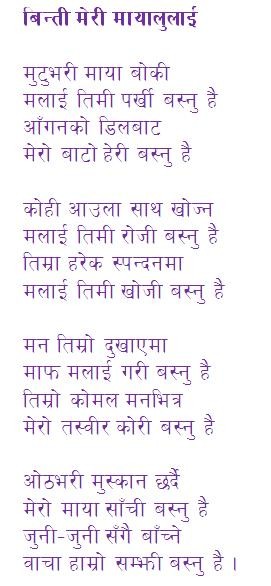 बिन्ती मेरी मायालुलाई
मुटुभरी माया बोकी
मलाई तिमी पर्खी बस्नु है
आँगनको डिलबाट
मेरो बाटो हेरी बस्नु है
कोही आउला साथ खोज्न
मलाई तिमी रोजी बस्नु है
तिम्रा हरेक स्पन्दनमा
मलाई तिमी खोजी बस्नु है
मन तिम्रो दुखाएमा
माफ मलाई गरी बस्नु है
तिम्रो कोमल मनभित्र
मेरो तस्वीर कोरी बस्नु है
ओठभरी मुस्कान छर्दै
मेरो माया साँची बस्नु है
जुनी-जुनी सँगै बाँच्ने
वाचा हाम्रो सम्झी बस्नु है ।